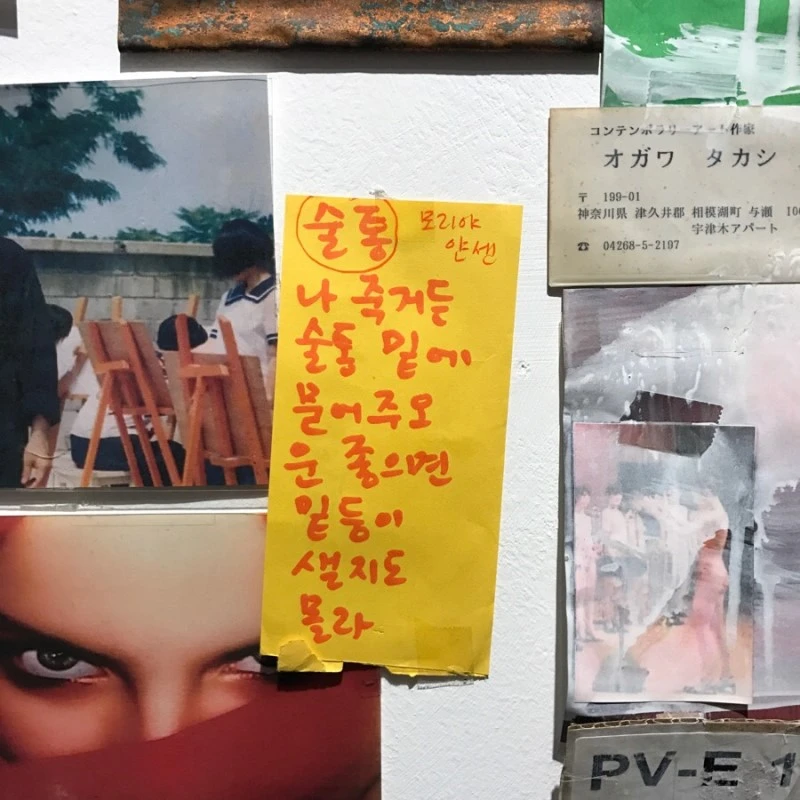 술통 모리야
얀센
나 죽거든
술통 밑에
묻어주오
운 좋으면
밑둥이
샐지도
몰라
コンテンポラリーアート作家
オガワ タカシ
〒 199-01
神奈川県 津久井郡 相模湖町 与瀬
宇津木アパート
☎ 04268-5-2197
PV-E 1